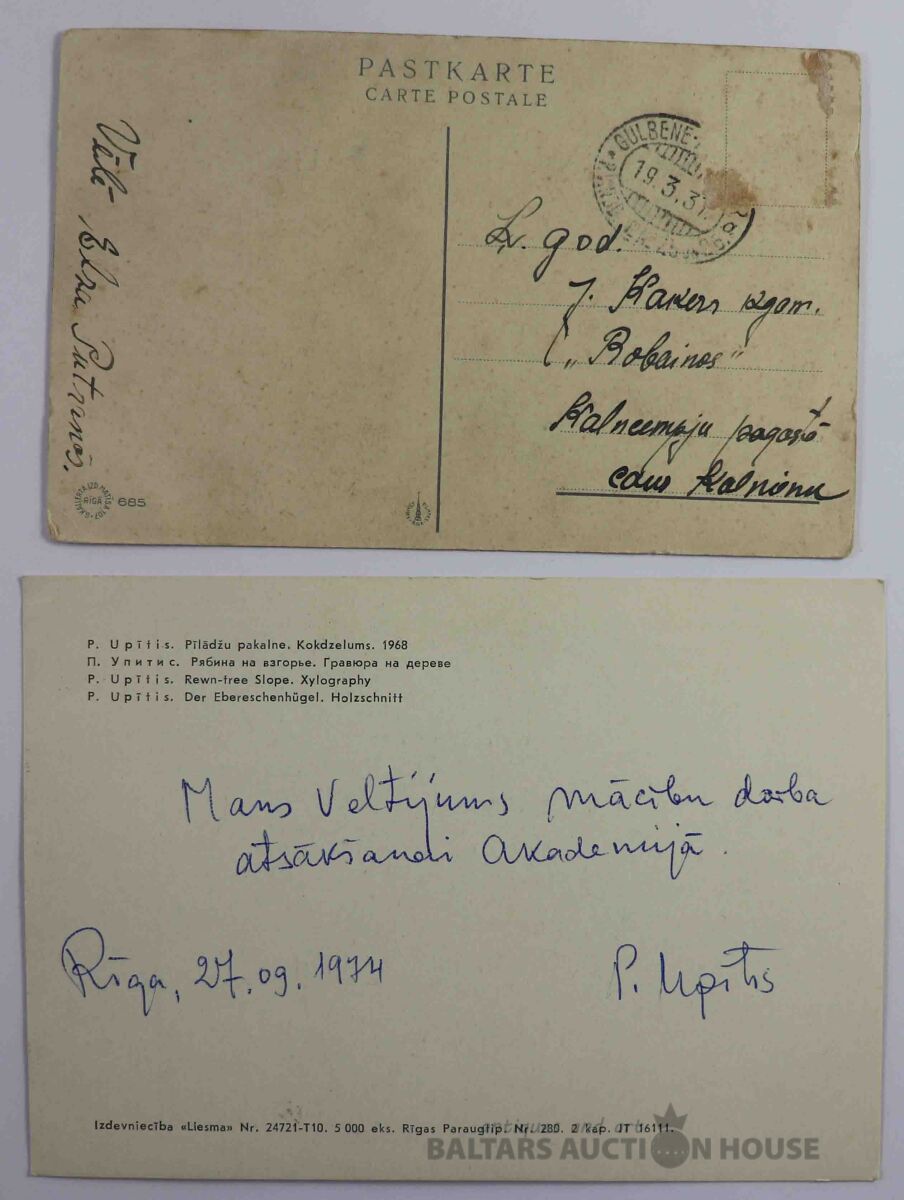 PASTKARTE
CARTE POSTALE
GULBENE
19.3.37
Vēlē Elza
L. god.
J. Kakers kgam.
"Robainos"
Kalncempju pagastā
caur Kalnienu
RĪGĀ
685
P. Upītis. Pīlādžu pakalne. Kokdzelums. 1968
П. Упитис. Рябина на взгорье. Гравюра на дереве
P. Upītis. Rewn-tree Slope. Xylography
P. Upītis. Der Ebereschenhügel. Holzschnitt
Mans Veltījums mācību darba
atsākšanai Akadēmijā.
Rīga, 27.09.1974
P. Upītis
Izdevniecība «Liesma» Nr. 24721-T10. 5 000 eks. Rīgas Paraugtip. Nr. 280. 2 kap. JT 16111.
BALTARS AUCTION HOUSE